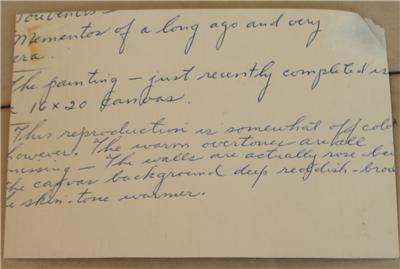 Souvenirs –
Mementos of a long ago and very
era.
The painting – just recently completed is
16 x 20 canvas.
This reproduction is somewhat off colo
however. The warm overtones are all
missing – The walls are actually rose-bei
the canvas background deep reddish-brow
e skin-tone warmer.